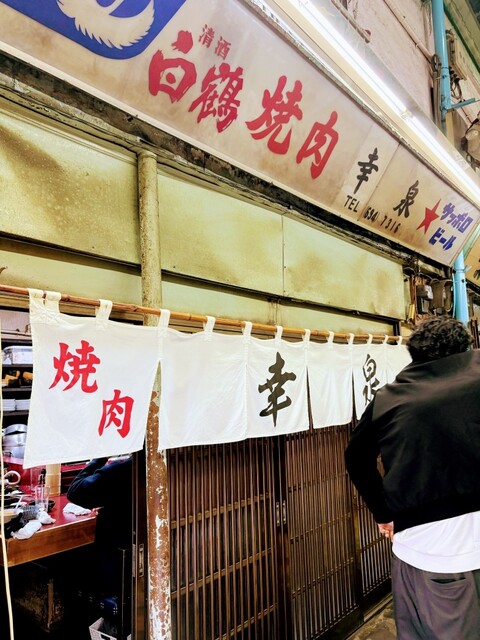 清酒
白鶴 焼肉 幸泉 ★ サッポロ
TEL 634 7316 ビール
焼肉 幸 泉